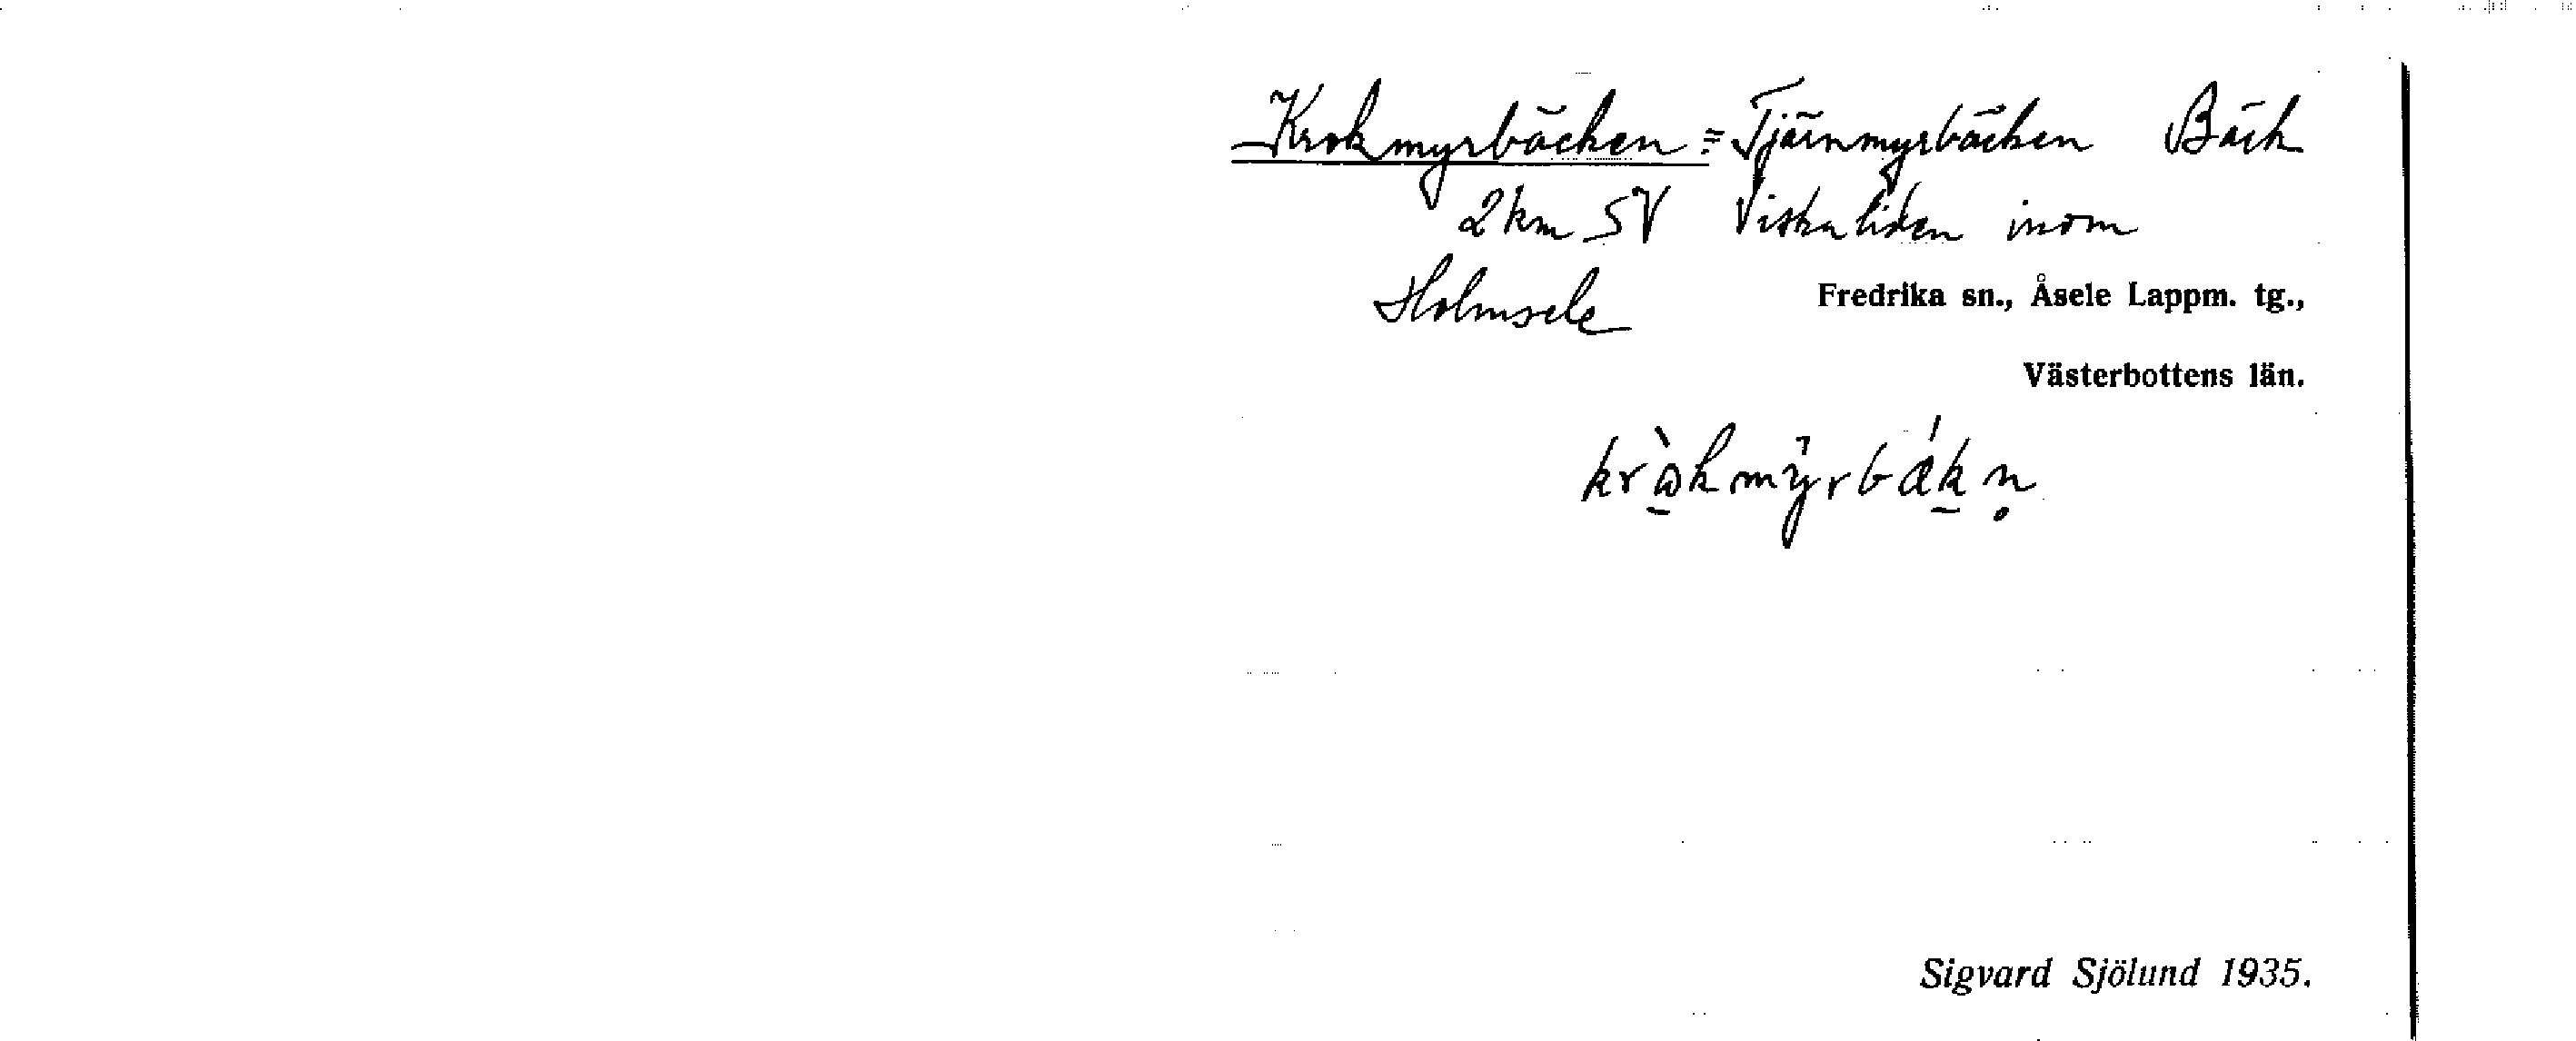 Krokmyrbäcken = Tjärnmyrbäcken Bäck
2 km SV Viskaliden inom
Holmsele Fredrika sn., Åsele Lappm. tg.,
Västerbottens län.
Sigvard Sjölund 1935.